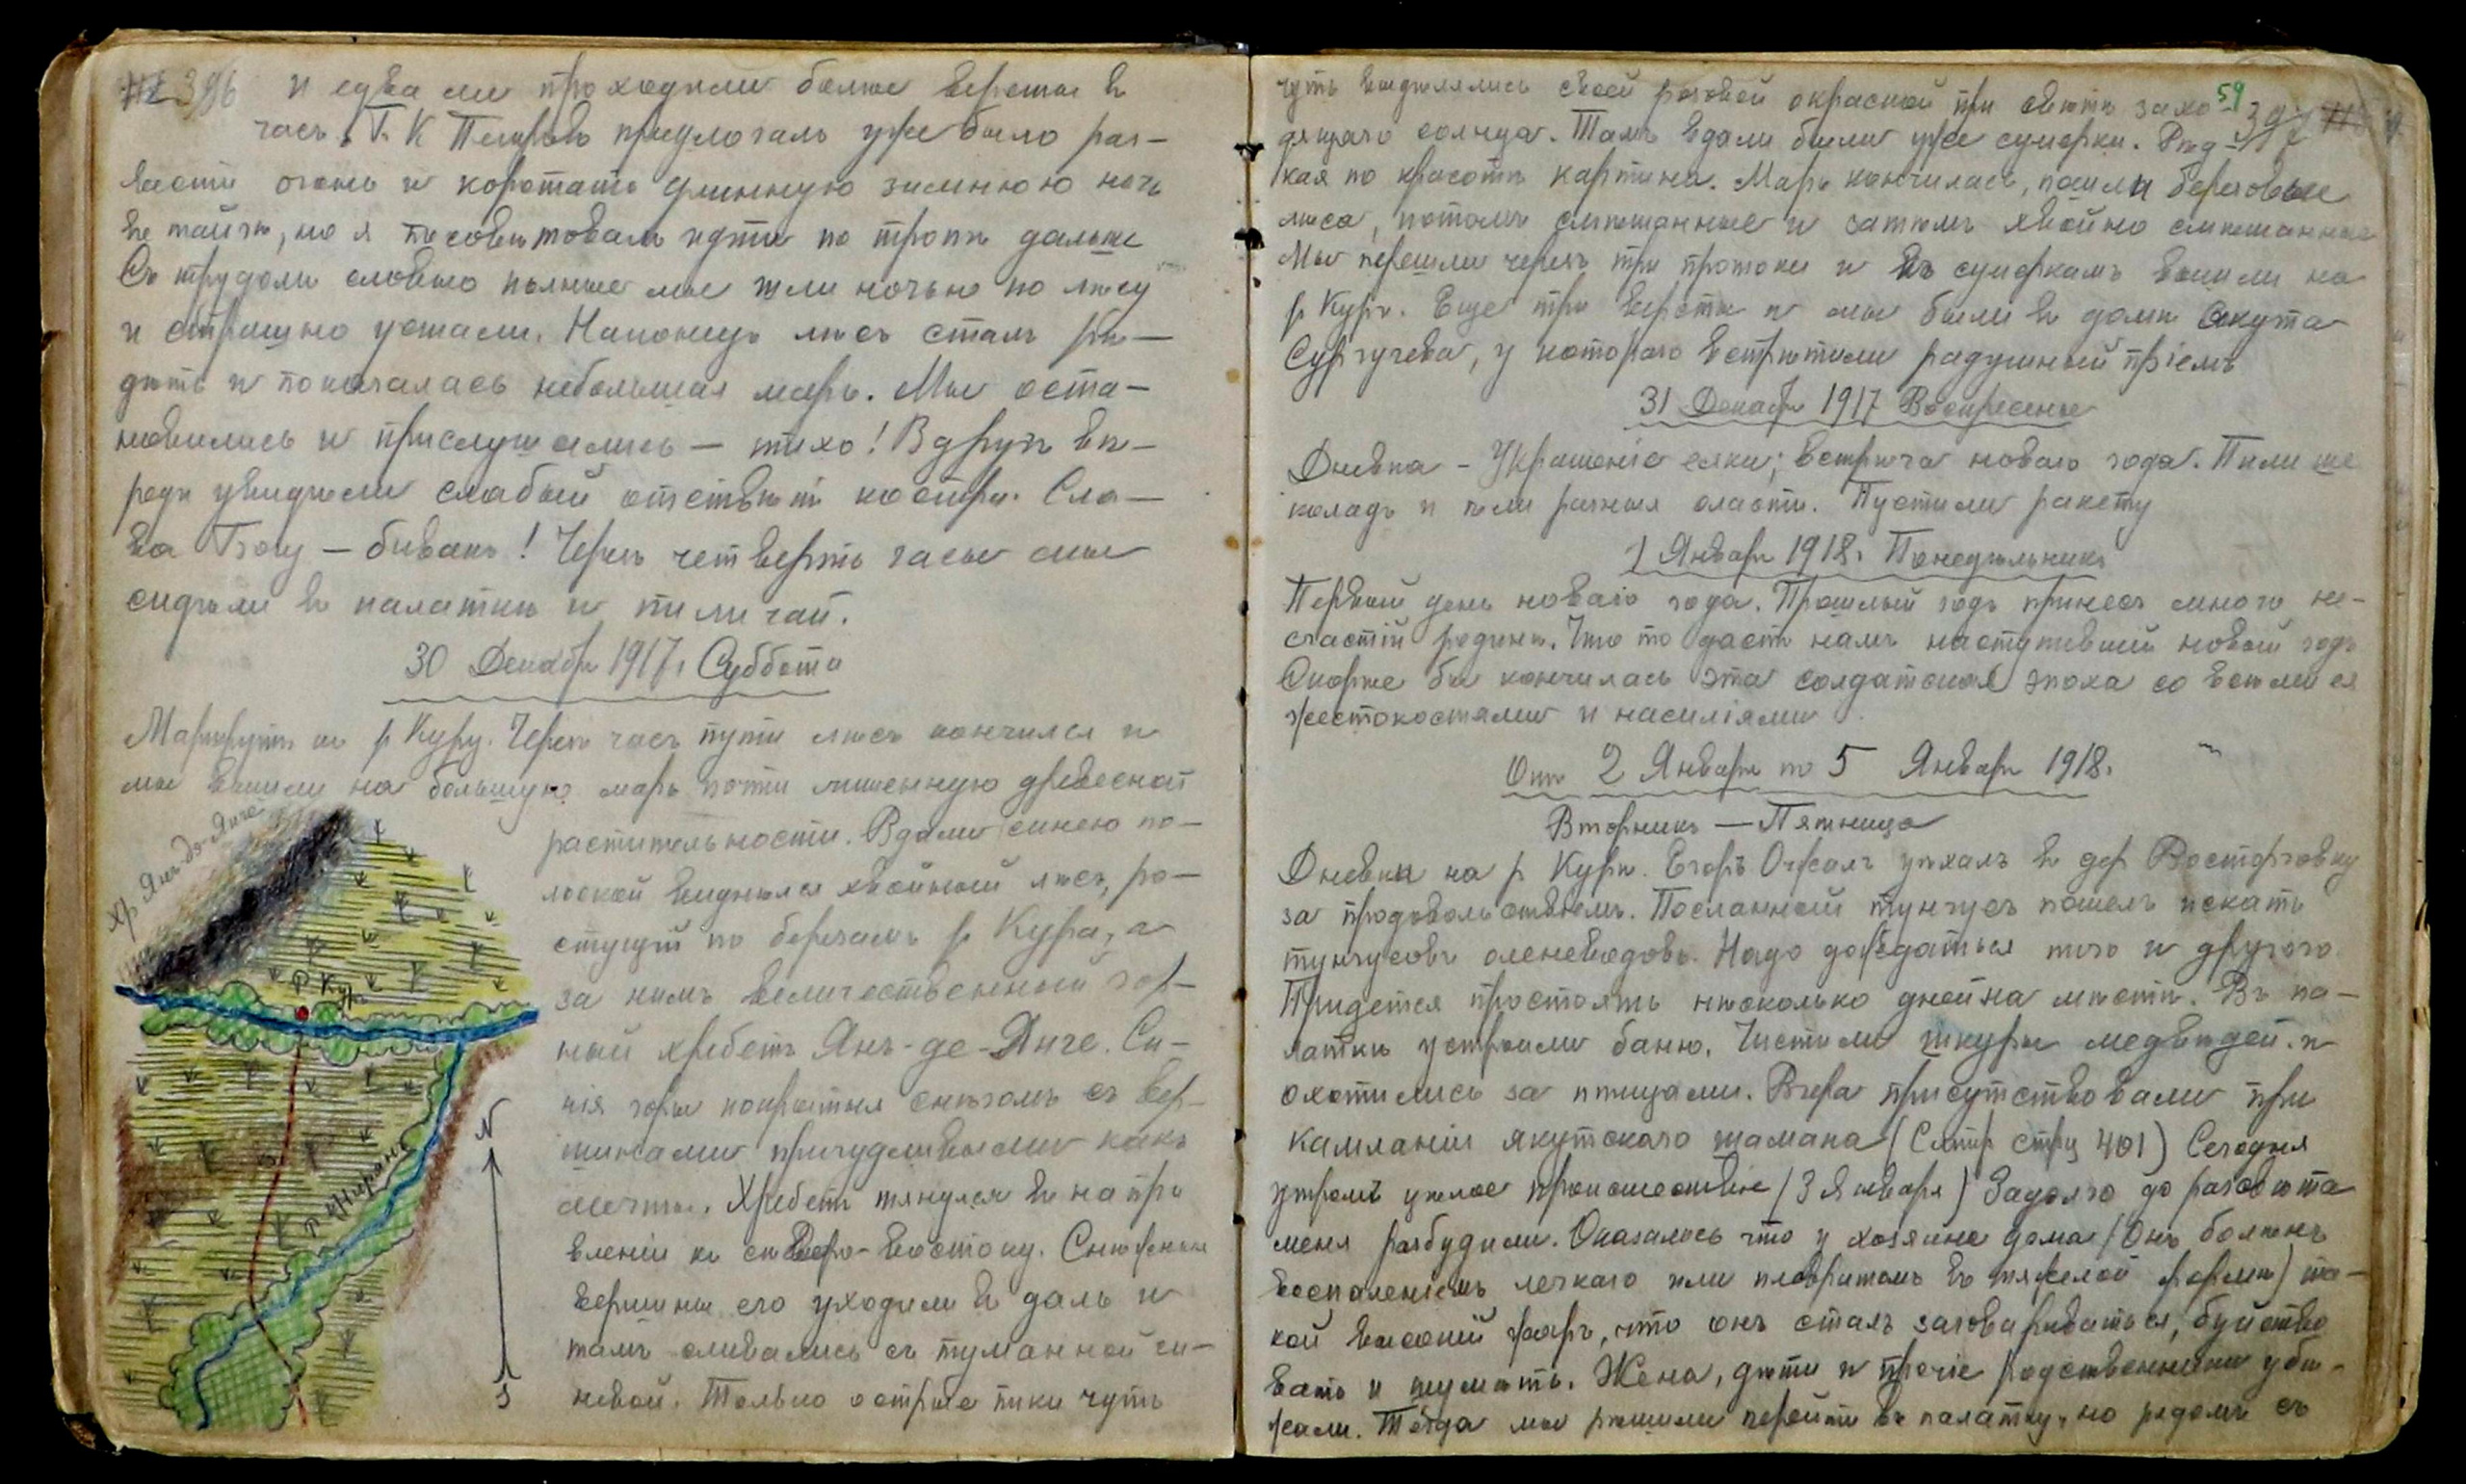 396 и едва ли проходили больше версты въ
часъ. Г. К Петровъ предлогалъ уже было раз-
вести огонь и коротать длинную зимнюю ночь
въ тайгѣ, но я посовѣтовалъ идти по тропѣ дальше
Съ трудомъ словно пьяные мы шли ночью по лѣсу
и страшно устали. Наконецъ лѣсъ сталъ рѣ-
дѣть и показалась небольшая марь. Мы оста-
новились и прислушались — тихо! Вдругъ впе-
реди увидѣли слабый отсвѣтъ костра. Сла-
ва Богу — бивакъ! Черезъ четверть часа мы
сидѣли въ палаткѣ и пили чай.
30 Декабря 1917г Суббота
Маршрутъ къ р Куру. Черезъ часъ пути лѣсъ кончился и
мы вышли на большую марь почти лишенную древесной
растительности. Вдали синею по-
лоской виднѣлся хвойный лѣсъ, ра-
стущій по берегамъ р Кура, а
за нимъ величественный гор-
ный хребетъ Янъ-де-Янге. Си-
нія горы покрытыя снѣгомъ съ вер-
шинами причудливыми какъ
мечты. Хребетъ тянулся въ напра
вленіи къ сѣверо-востоку. Снѣжныя
вершины его уходили въ даль и
тамъ сливались съ туманной си-
невой. Только острые пики чуть
хр Янъ-дэ-Янге
р Куръ
N
S
59
397
чуть выдѣлялись своей розовой окраской при свѣтѣ захо-
дящаго солнца. Тамъ вдали были уже сумерки. Рѣд-
кая по красотѣ картина. Марь кончилась, пошли березовые
лѣса, потомъ смѣшанные и затѣмъ хвойно смѣшанные
Мы перешли черезъ три протоки и къ сумеркамъ вышли на
р Куръ. Еще три версты и мы были въ домѣ якута
Сургучева, у котораго встрѣтили радушный пріемъ
31 Декабря 1917 Воскресенье
Дневка - Украшеніе елки; встрѣча новаго года. Пили шо
коладъ и ѣли разныя сласти. Пустили ракету
1 Января 1918г Понедѣльникъ
Первый день новаго года. Прошлый годъ принесъ много не-
счастій родинѣ. Что то дастъ намъ наступившій новый годъ
Скорѣе бы кончилась эта солдатская эпоха со всѣми ея
жестокостями и насиліями
Отъ 2 Января по 5 Января 1918г
Вторникъ — Пятница
Дневки на р Курѣ. Егоръ Ожалъ уѣхалъ въ дер Восторговку
за продовольствіемъ. Посланный тунгусъ пошелъ искать
тунгусовъ оленеводовъ. Надо дождаться того и другого.
Придется простоять нѣсколько дней на мѣстѣ. Въ па-
латкѣ устроили баню. Чистили шкуры медвѣдей и
охотились за птицами. Вчера присутствовали при
камланіи якутскаго шамана (Смтр стрц 401) Сегодня
утромъ цѣлое происшествіе (3 Января) Задолго до разсвѣта
меня разбудили. Оказалось что у хозяина дома (Онъ боленъ
воспаленіемъ легкаго или плевритомъ въ тяжелой формѣ) та-
кой высокій жаръ, что онъ сталъ заговариваться, буйство
вать и шумѣть. Жена, дѣти и прочіе родственники убѣ-
жали. Тогда мы рѣшили перейти въ палатку, но рядомъ съ